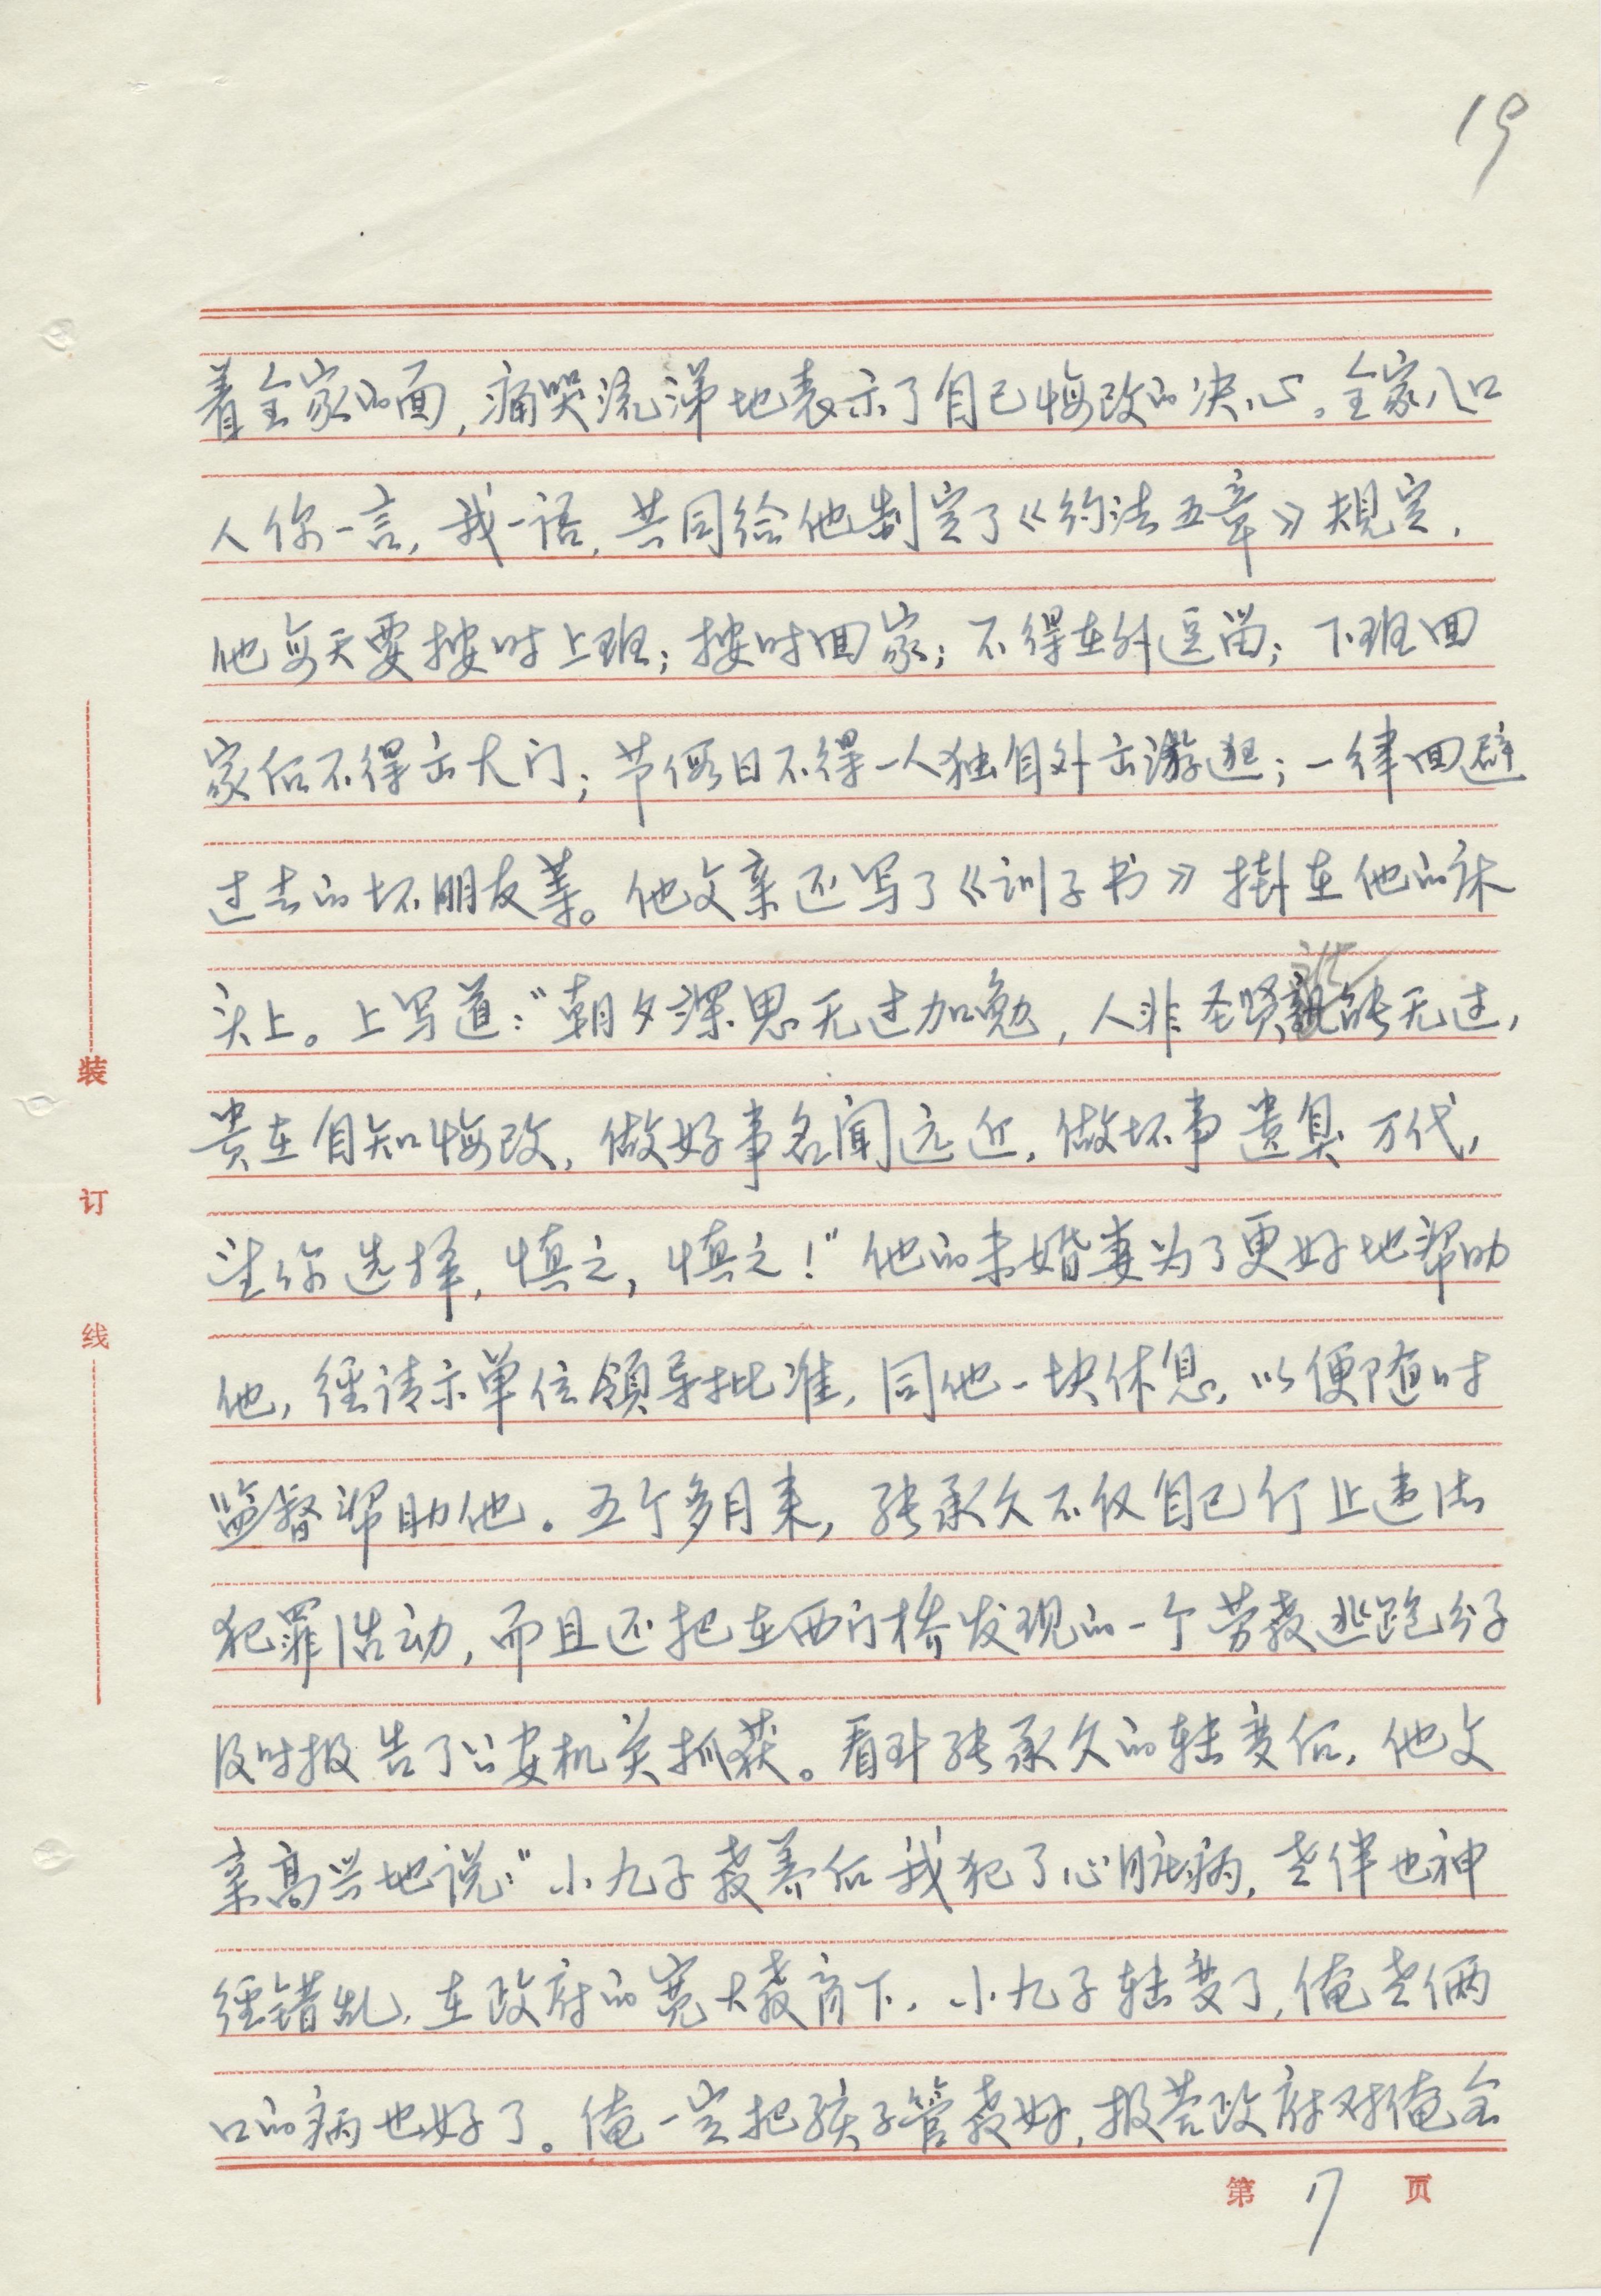 19
着全家的面，痛哭流涕地表示了自己悔改的决心。全家八口
人你一言，我一语，共同给他制定了《约法五章》规定，
他每天要按时上班；按时回家；不得在外逗留；下班回
家后不得出大门；节假日不得一人独自外出游逛；一律回避
过去的坏朋友等。他父亲还写了《训子书》掛在他的床
头上。上写道：“朝夕深思无过加勉，人非圣贤孰能无过，
贵在自知悔改，做好事名闻远近，做坏事遗臭万代，
望你选择，慎之，慎之！”他的未婚妻为了更好地帮助
他，经请示单位领导批准，同他一块休息，以便随时
监督帮助他。五个多月来，张承久不仅自己停止违法
犯罪活动，而且还把在西门桥发现的一个劳教逃跑分子
及时报告了公安机关抓获。看到张承久的转变后，他父
亲高兴地说：“小九子教养后我犯了心脏病，老伴也神
经错乱，在政府的宽大教育下，小九子转变了，俺老俩
口的病也好了。俺一定把孩子管教好，报答政府对俺全
装
订
线
第 17 页